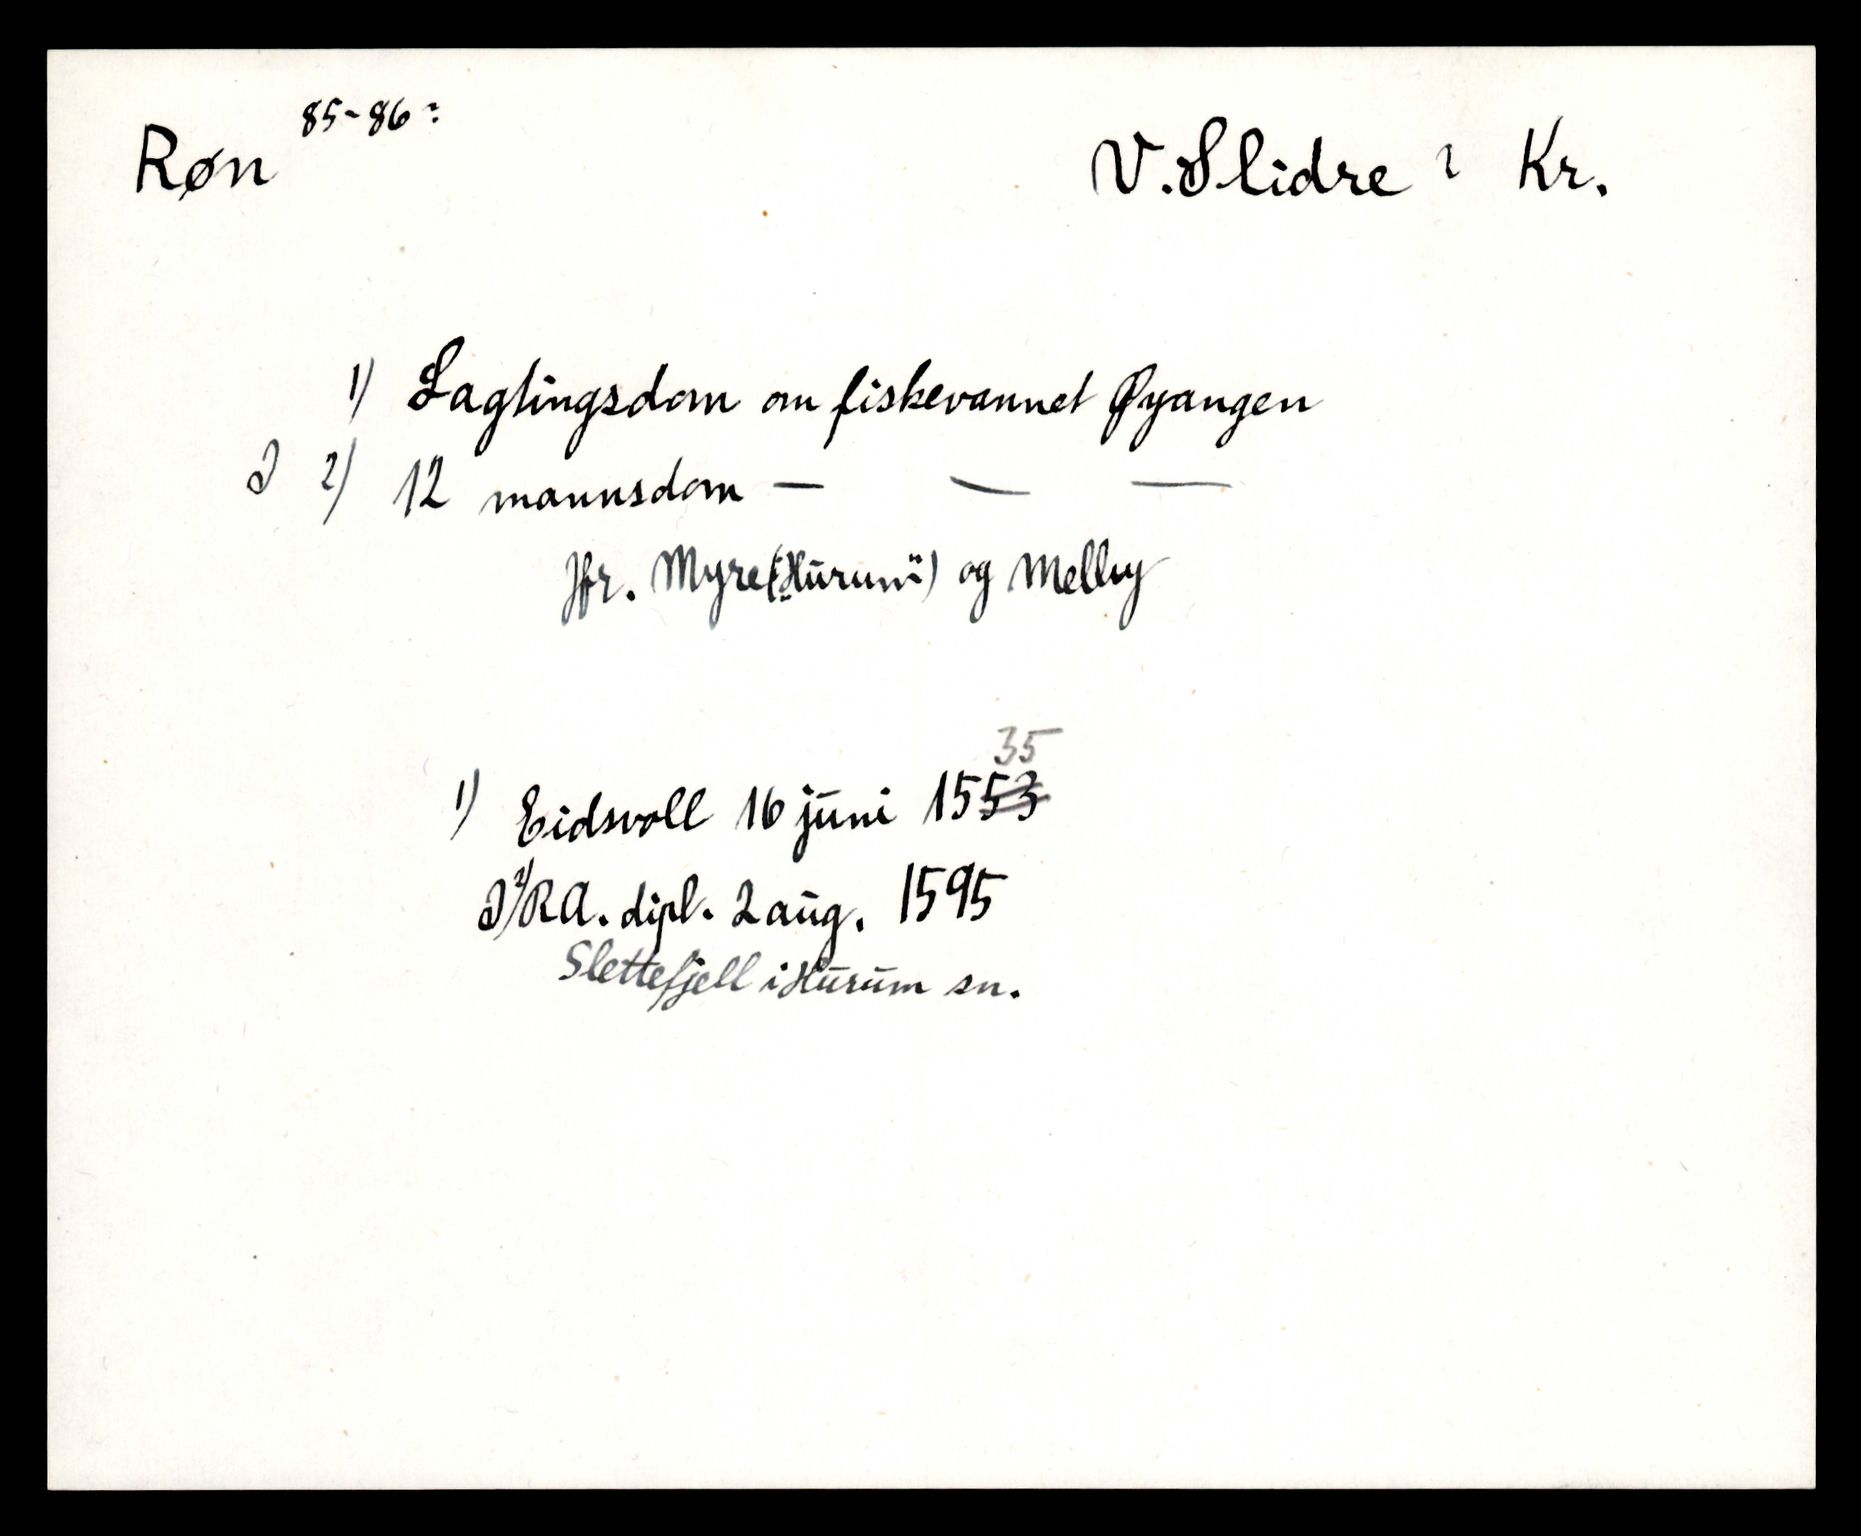 Røn 85-86? V. Slidre ? Kr.
1) Lagtingsdom om fiskevannet Øyangen
2) 12 mannsdom — — —
jfr. Myre (Hurum) og Melby
1) Eidsvoll 16 juni 1553 35
2) RA. dipl. 2 aug. 1595
Slettefjell i Hurum sn.